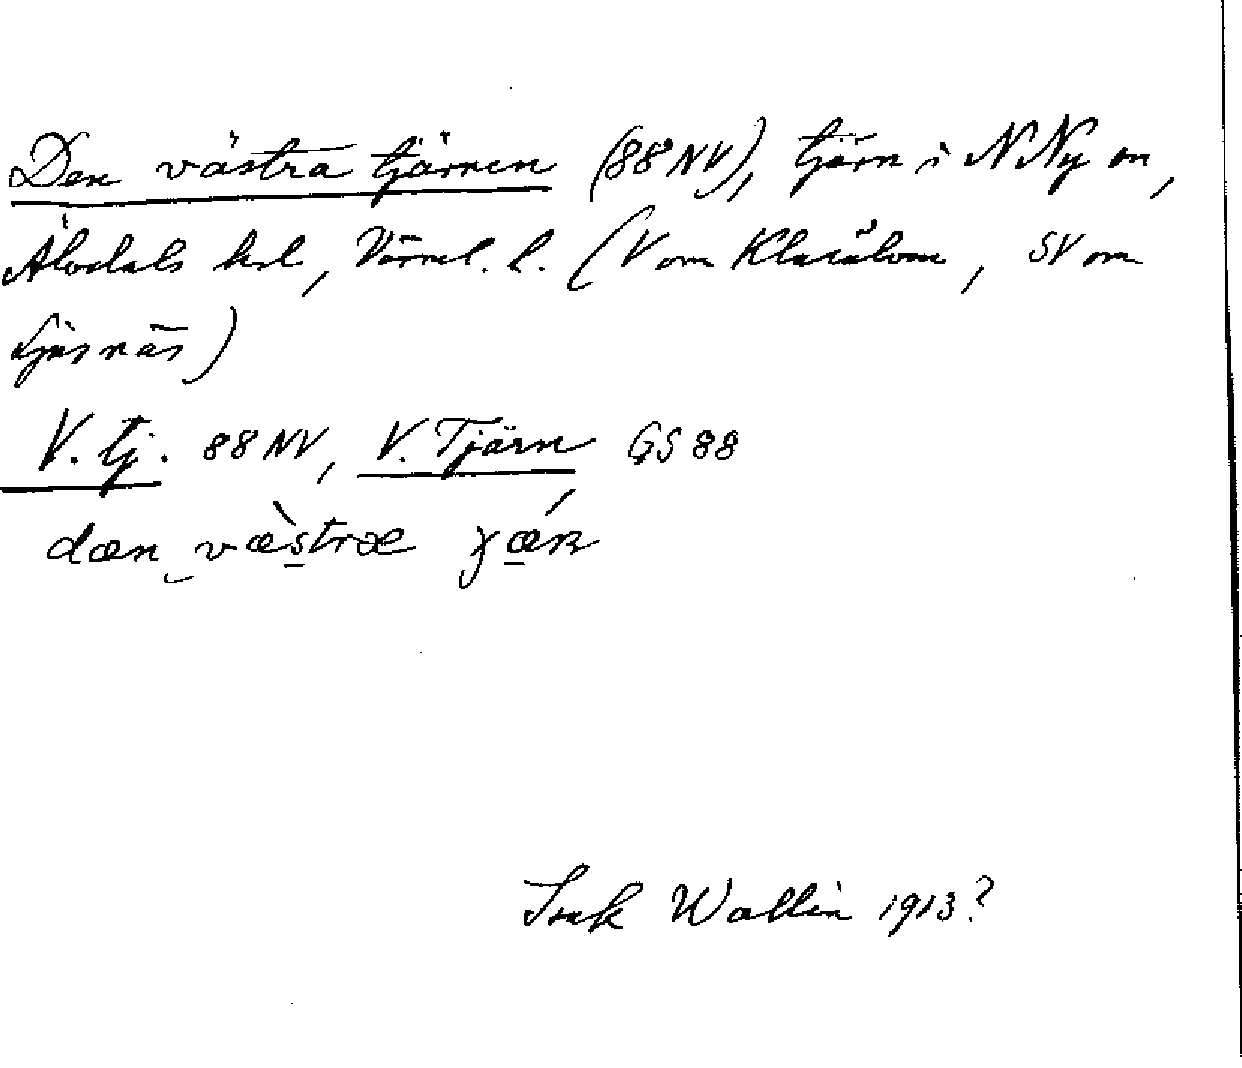 Den västra tjärnen (88 NV), tjärn i N Ny sn,
Älvdals hd, Värml. l. (V om Klarälven, SV om
näs)
V. tj. 88 NV, V. Tjärn GS 88
dæn væ̀stræ
Wallin 1913?